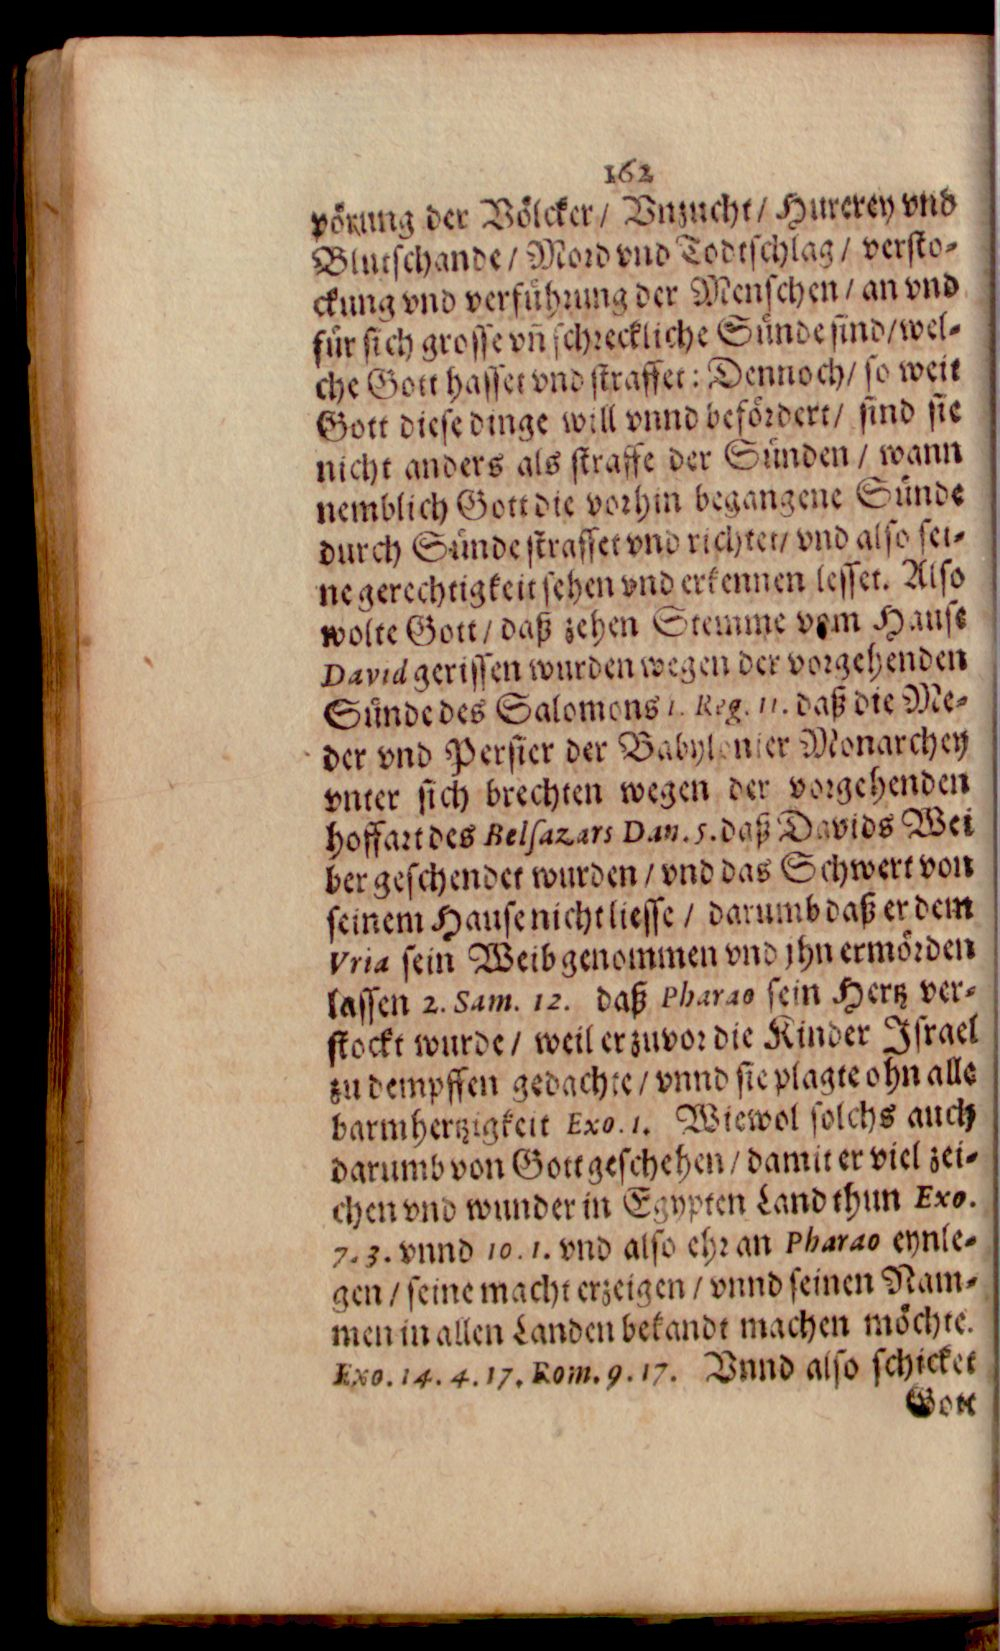 162
pörung der Völcker / Vnzucht / Hurerey vnd
Blutschande / Mord vnd Todtschlag / versto-
ckung vnd verführung der Menschen / an vnd
für sich grosse vñ schreckliche Sünde sind / wel-
che Gott hasset vnd straffet: Dennoch / so weit
Gott diese dinge will vnnd befördert / sind sie
nicht anders als straffe der Sünden / wann
nemblich Gott die vorhin begangene Sünde
durch Sünde straffet vnd richtet / vnd also sei-
ne gerechtigkeit sehen vnd erkennen lesset. Also
wolte Gott / daß zehen Stemme vom Hause
David gerissen wurden wegen der vorgehenden
Sünde des Salomons 1. Reg. 11. daß die Me-
der vnd Persier der Babylonier Monarchey
vnter sich brechten wegen der vorgehenden
hoffart des Belsazars Dan. 5. daß Davids Wei
ber geschendet wurden / vnd das Schwert von
seinem Hause nicht liesse / darumb daß er dem
Vria sein Weib genommen vnd jhn ermörden
lassen 2. Sam. 12. daß Pharao sein Hertz ver-
stockt wurde / weil er zuvor die Kinder Israel
zu dempffen gedachte / vnnd sie plagte ohn alle
barmhertzigkeit Exo. 1. Wiewol solchs auch
darumb von Gott geschehen / damit er viel zei-
chen vnd wunder in Egypten Land thun Exo.
7. 3. vnnd 10. 1. vnd also ehr an Pharao eynle-
gen / seine macht erzeigen / vnnd seinen Nam-
men in allen Landen bekandt machen möchte.
Exo. 14. 4. 17. Rom. 9. 17. Vnnd also schicket
Gott